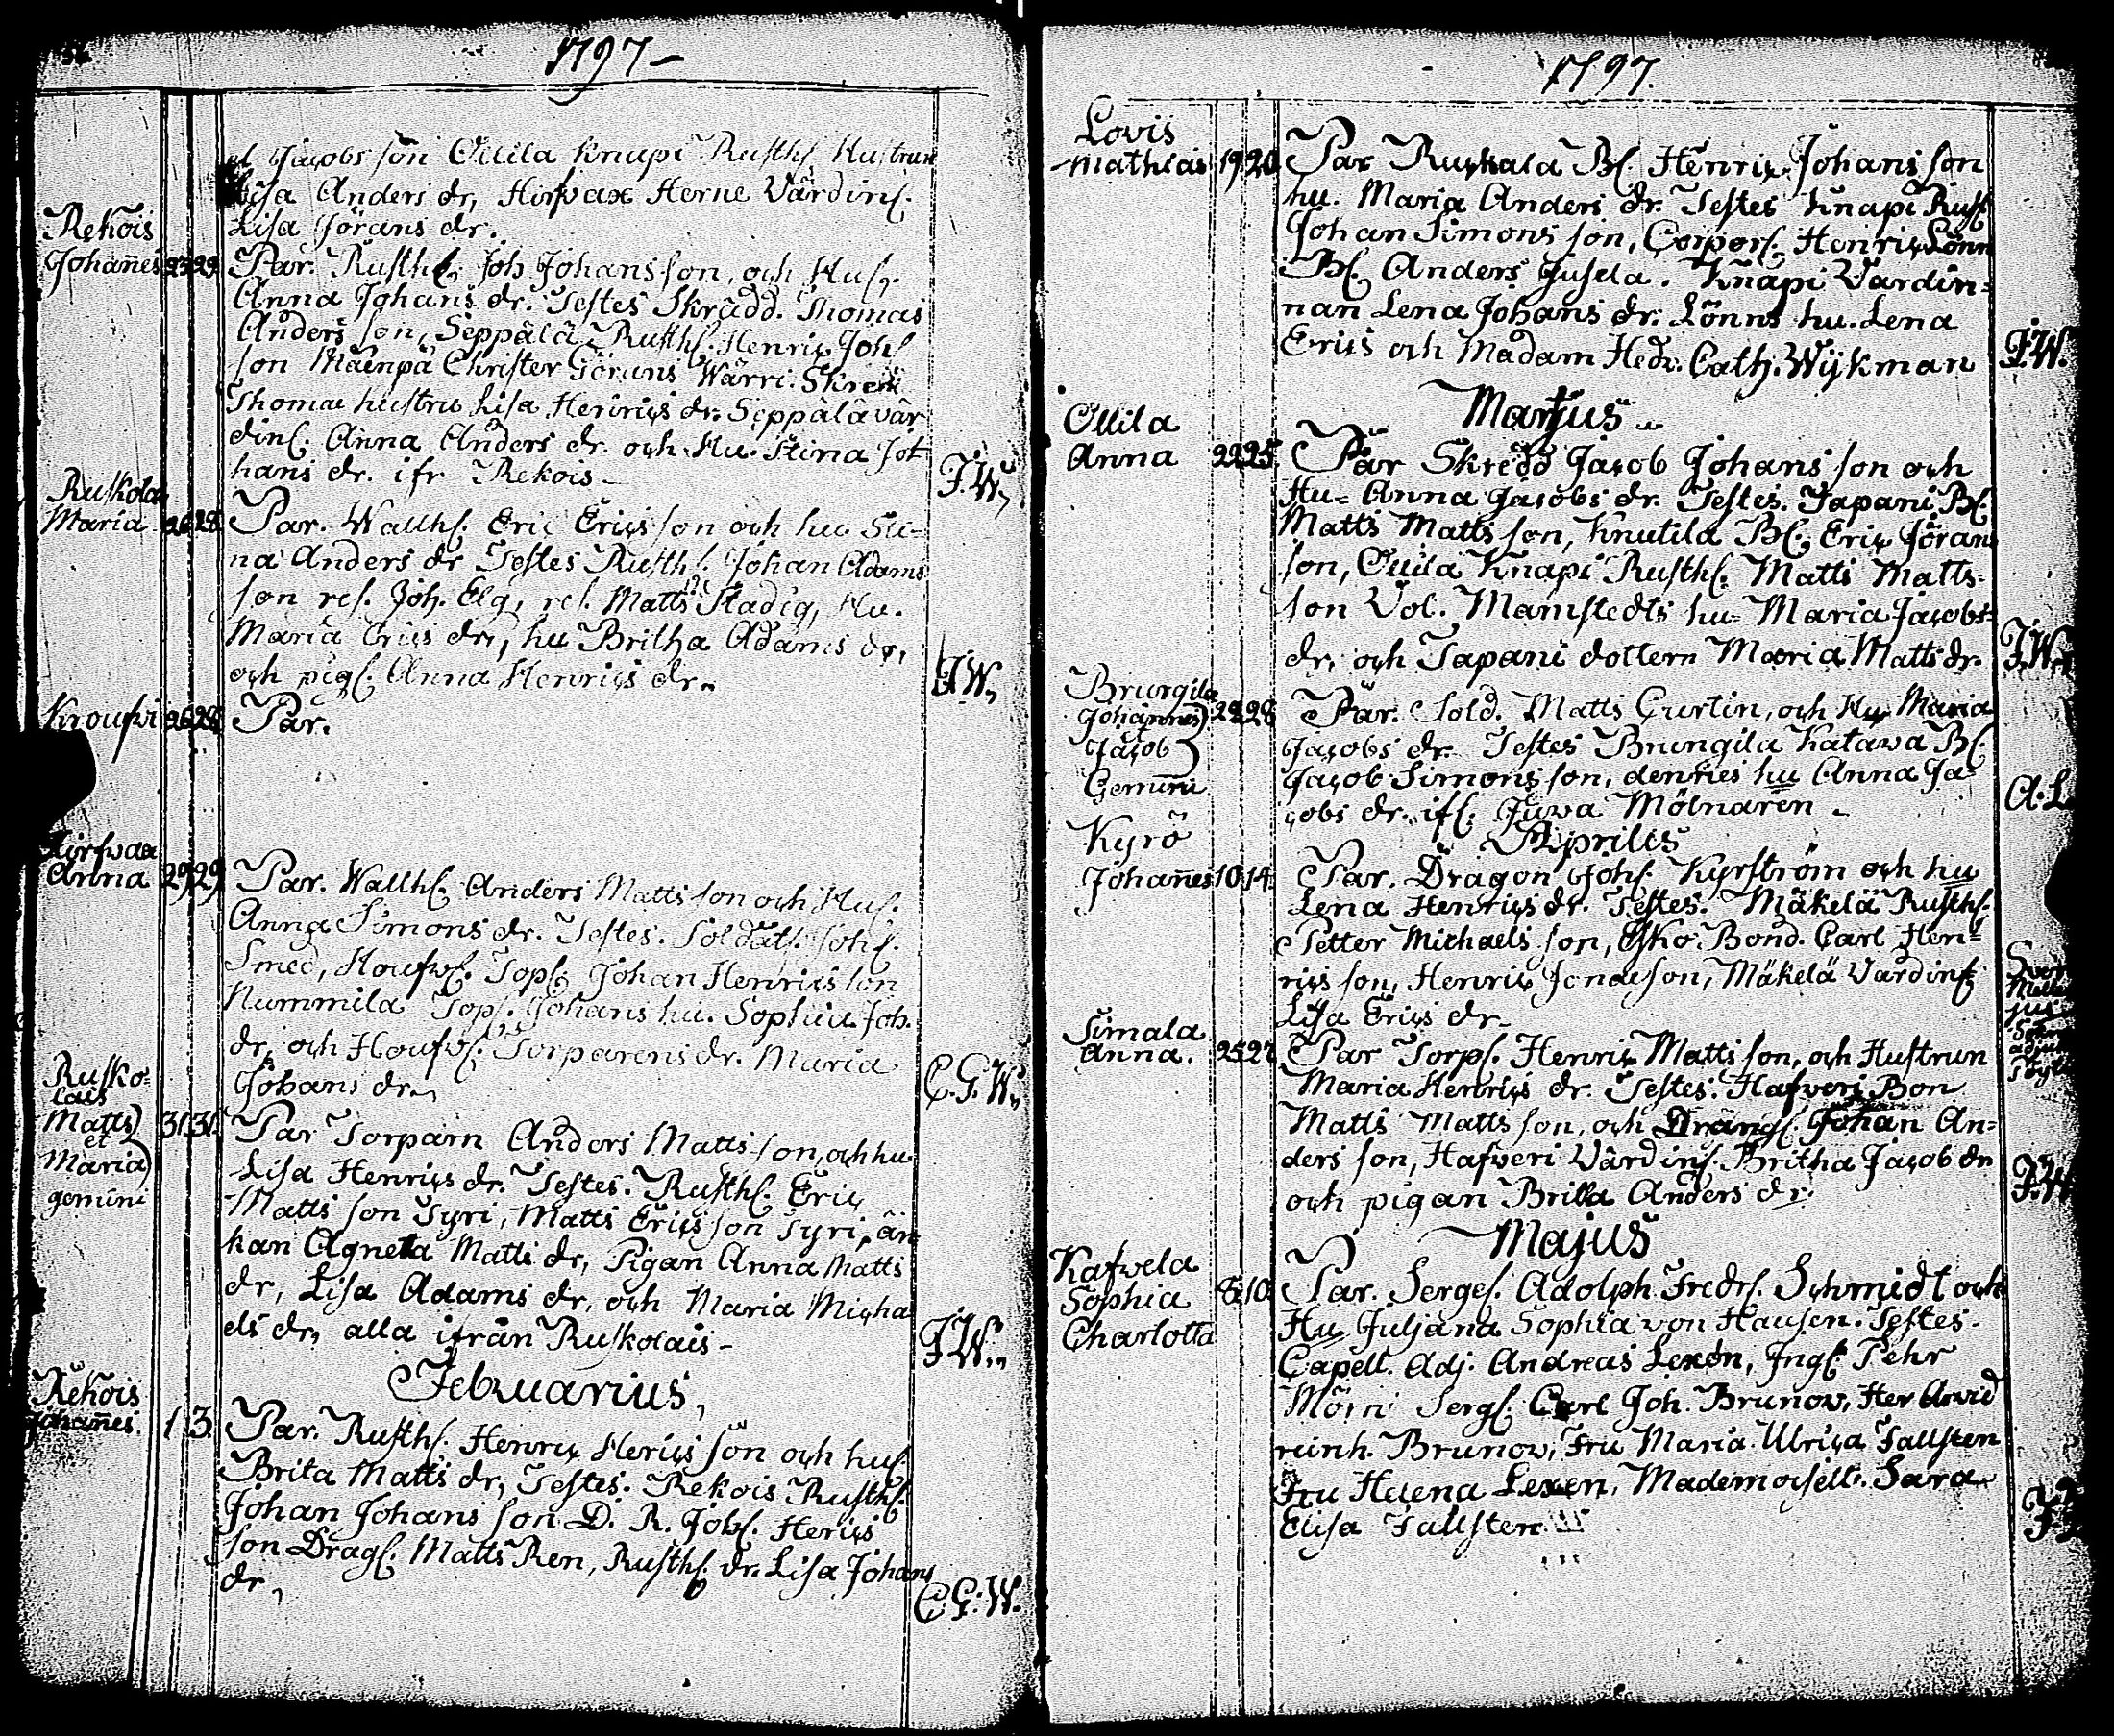 1797
et Jacobs son Ollila Knapi Rusth. Hustrun
Lisa Anders dr, Hirfvax Herne Värdin.
Rekois
Lisa Görans dr.
Johañes 23 29 Par. Rusth. Joh Johans son, och Hus.
Anna Johans dr. Testes Skrädd. Thomas
Anders son, Seppälä Rusth. Henric Joh
son Mäenpä Christer Görans Wärri. Skredd
Thomae hustru Lisa Henrics dr. Seppälä vär
din. Anna Anders dr. och Hu. Stina Jo
hans dr. ifr Rekois
J.W.
Ruskola
Maria 26 28 Par. Wallh. Eric Erics son och hu Sti=
na Anders dr Testes Rusth. Johan Adams
son res. Joh. Elg, res. Matts Stadig, Hu.
Maria Erics dr, hu Britha Adams dr,
och pig. Anna Henrics dr.
J.W.
Kroufvi 26 28 Par.
Hirfvax
Anna 29 29 Par. Wallh. Anders Matts son och Hus.
Anna Simons dr. Testes. Soldat. Joh.
Smed, Houfv. Torp. Johan Henrics son
Nummila Torp. Johans hu. Sophia Joh.
dr, och Houfv. Torparens dr. Maria
Johans dr.
C.G.W.
Rusko=
lais
Matts 31 31 Par Torparn Anders Matts son, och hu
et
Maria Lisa Henrics dr. Testes. Rusth. Eric
gemini Matts son Tyri, Matts Erics son Tyri, än
kan Agneta Matts dr, Pigan Anna Matts
dr, Lisa Adams dr, och Maria Micha
els dr, alla ifrån Ruskolais
J.W.
Februarius
Rekois
Johañes. 1 3 Par. Rusth. Henric Henrics son och hus
Brita Matts dr, Testes. Rekois Rusth.
Johan Johans son D. R. Joh. Henrics
son Drag. Matts Ren, Rusth. dr. Lisa Johans
dr,
C.G.W.
1797.
Lovis
Mathias 19 20 Par Ruskala B. Henric Johans son
hu. Maria Anders dr. Testes Knapi Rust
Johan Simons son, Corpor. Henric Lönn
B. Anders Jusela. Knapi Värdin=
nan Lena Johans dr. Lönns hu. Lena
Erics och Madam Hedv. Cath. Wijkman
J.W.
Martjus
Ollila
Anna 22 25 Par Skredd Jacob Johans son och
Hu= Anna Jacobs dr. Testes. Tapani B.
Matts Matts son, Knutila B. Eric Jörans
son, Ollila Knapi Rusth. Matts Matts=
son Vol. Mamstedts hu= Maria Jacobs=
dr, och Tapani dottern Maria Matts dr.
J.W.
Brungila
Johannes 22 28 Par. Sold. Matts Curtin, och Hu Maria
et
Jacob Jacobs dr. Testes Brungila Katawa B.
Gemini Jacob Simons son, dennes hu Anna Ja=
cobs dr. if. Juva Mölnaren
A.L.
Apriles
Kyrö
Johañes 10 14 Par. Dragon Joh. Kyrström och hu
Lena Henrics dr. Testes. Mäkelä Rusth.
Petter Michaels son, Esko Bond. Carl Hen=
rics son, Henric Jonae son, Mäkelä Värdin.
Lisa Erics dr
Simala
Anna. 25 27 Par Torp. Henric Matts son, och Hustrun
Maria Henrics dr. Testes. Hafveri Bon
Matts Matts son, och Dräng. Johan An=
ders son, Hafveri Värdin. Britha Jacobs dr
och pigan Britta Anders dr.
J.W.
Majus
Kafvela
Sophia 8 10 Par. Serge. Adolph Fredr. Schmidt och
Charlotta Hu Juljana Sophia von Hausen. Testes
Capell. Adj. Andreas Lexén, Jng. Pehr
Serg. Carl Joh. Brunow, Her Arvid
reinh. Brunow, Fru Maria Ulrica Fallsten
Fru Helena Lexen, Mademoisell. Sara
Elisa Fallsten